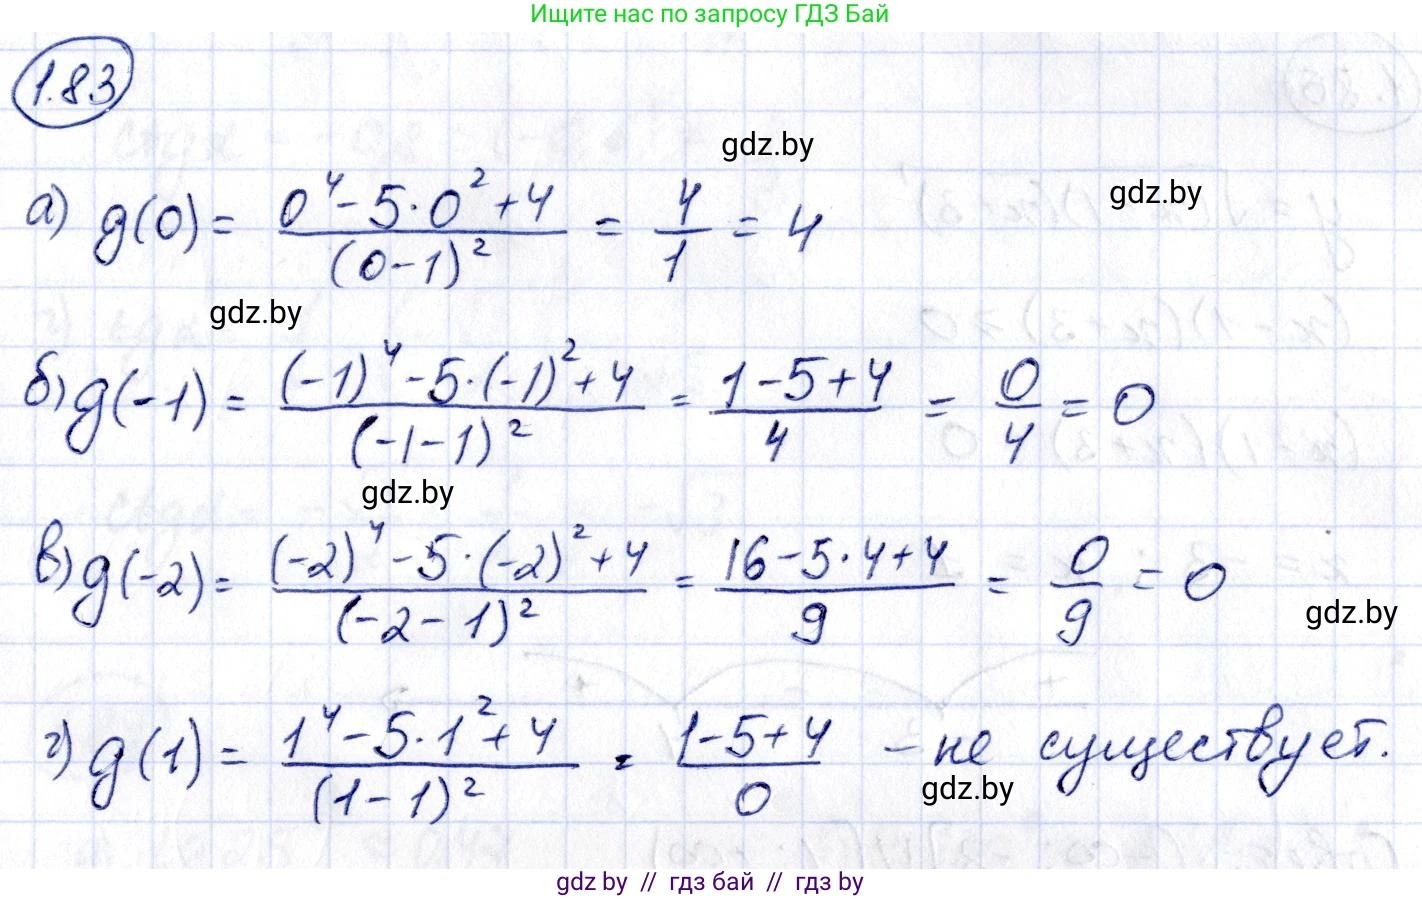 Ищите нас по запросу ГДЗ Бай
1.83
gdz.by
gdz.by
а) g(0) = (0⁴ - 5·0² + 4)/(0 - 1)² = 4/1 = 4
gdz.by
б) g(-1) = ((-1)⁴ - 5·(-1)² + 4)/(-1 - 1)² = (1 - 5 + 4)/4 = 0/4 = 0
gdz.by
в) g(-2) = ((-2)⁴ - 5·(-2)² + 4)/(-2 - 1)² = (16 - 5·4 + 4)/9 = 0/9 = 0
gdz.by
г) g(1) = (1⁴ - 5·1² + 4)/(1 - 1)² = (1 - 5 + 4)/0 – не существует.
gdz.by
gdz by // гдз бай // гдз by